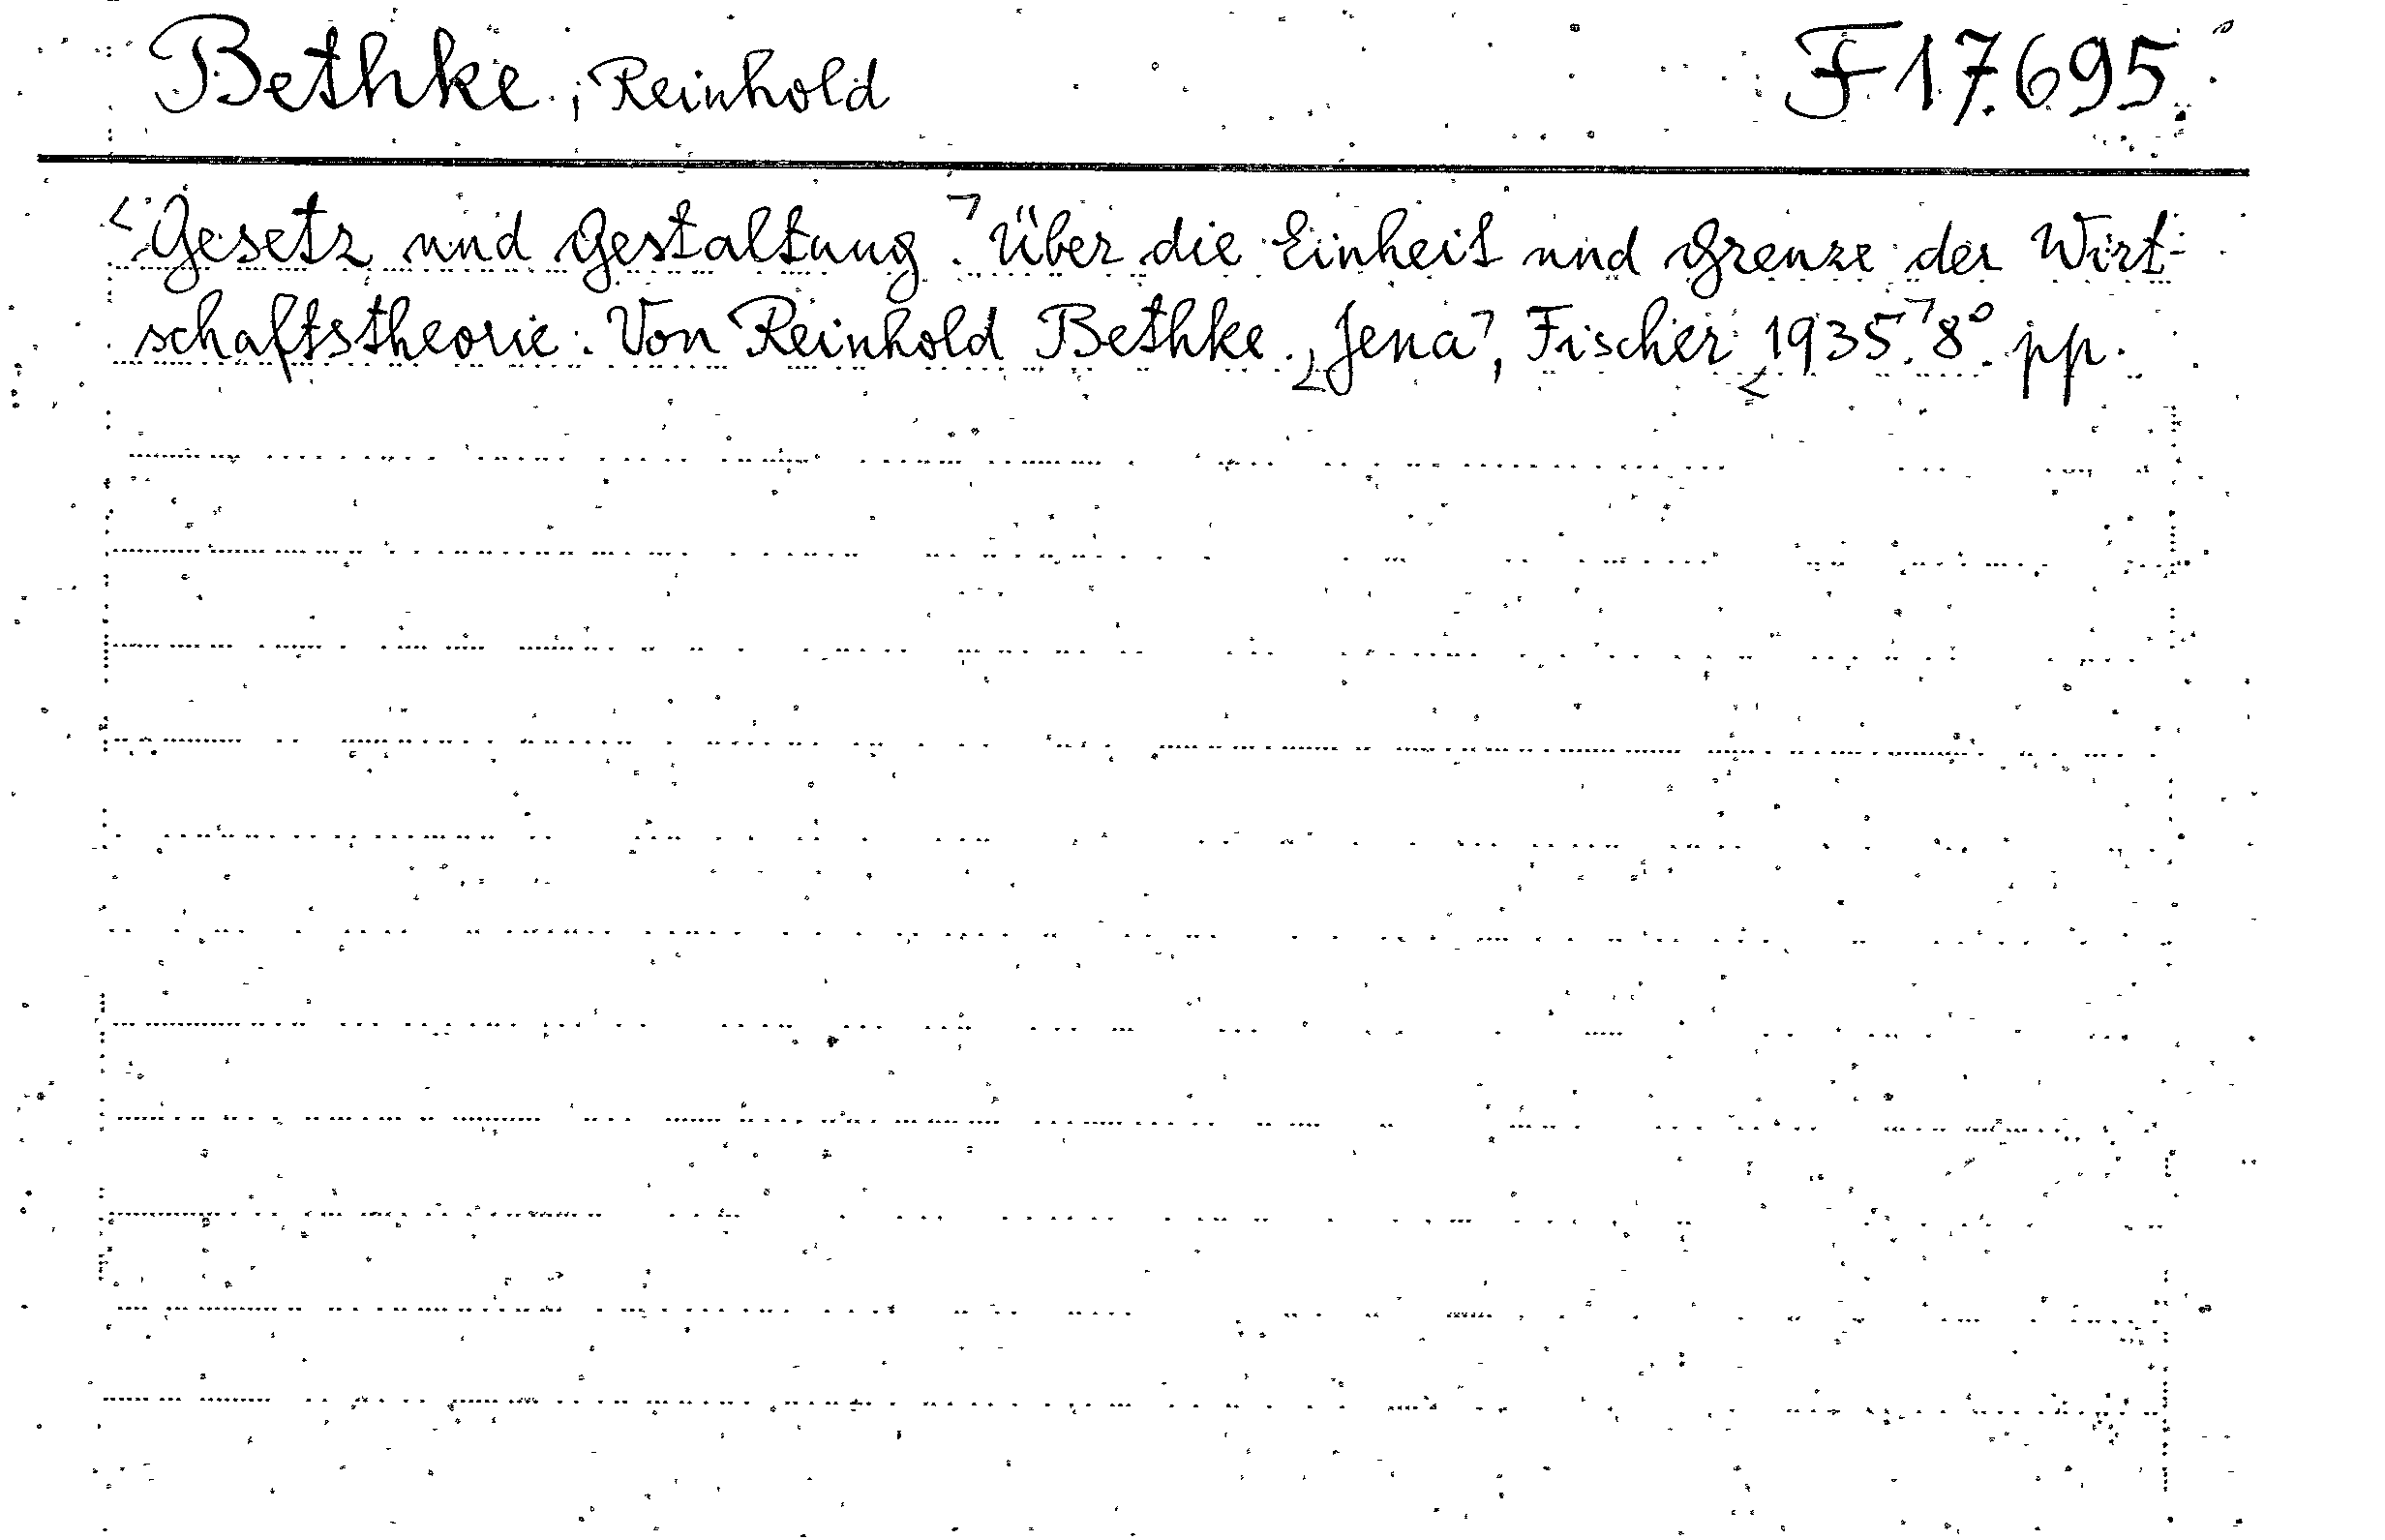 Bethke, Reinhold F 17.695
<Gesetz und Gestaltung.> Über die Einheit und Grenze der Wirt-
schaftstheorie. Von Reinhold Bethke. <Jena>, Fischer <1935.> 8°. pp.